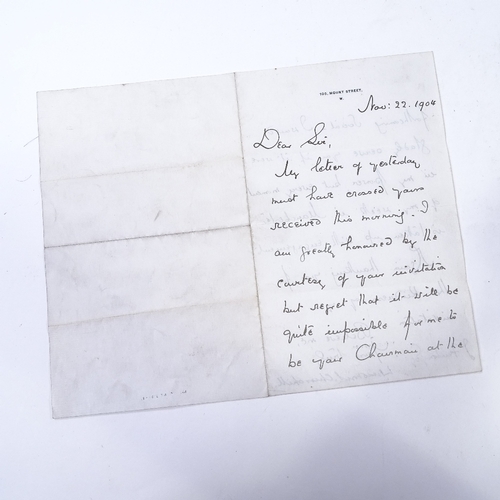 103, MOUNT STREET,
W.
Nov: 22. 1904
Dear Sir,
My letter of yesterday
must have crossed yours
received this morning. I
am greatly honoured by the
courtesy of your invitation
but regret that it will be
quite impossible for me to
be your Chairman at the